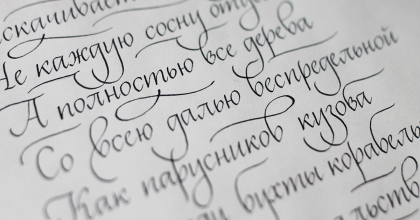 Не каждую сосну
А полностью все дерева
Со всею далью беспредельной
Как парусников кузова
бухты